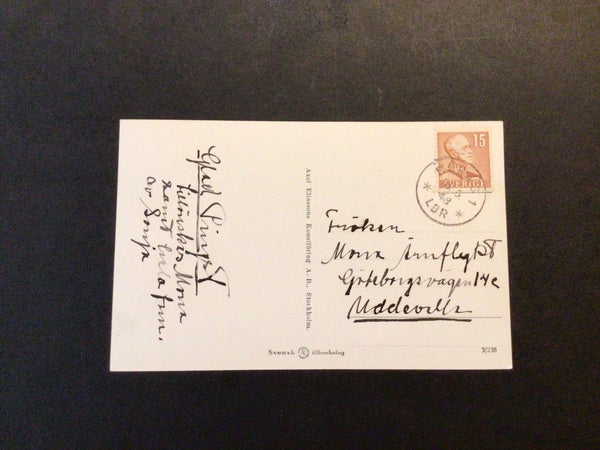 Glad Pingst
tillönskas Mona
samt hela fam.
av Sonja
Axel Eliassons Konstförlag A.-B., Stockholm.
15
SVERIGE
LBR
Fröken
Mona
Göteborgsvägen 14c
Uddevalla
Svensk tillverkning
3/236